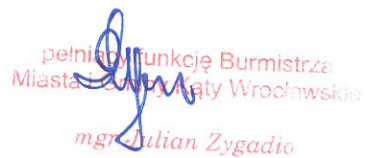 pełniący funkcję Burmistrza
Miasta i Gminy Kąty Wrocławskie
mgr Julian Żygadło